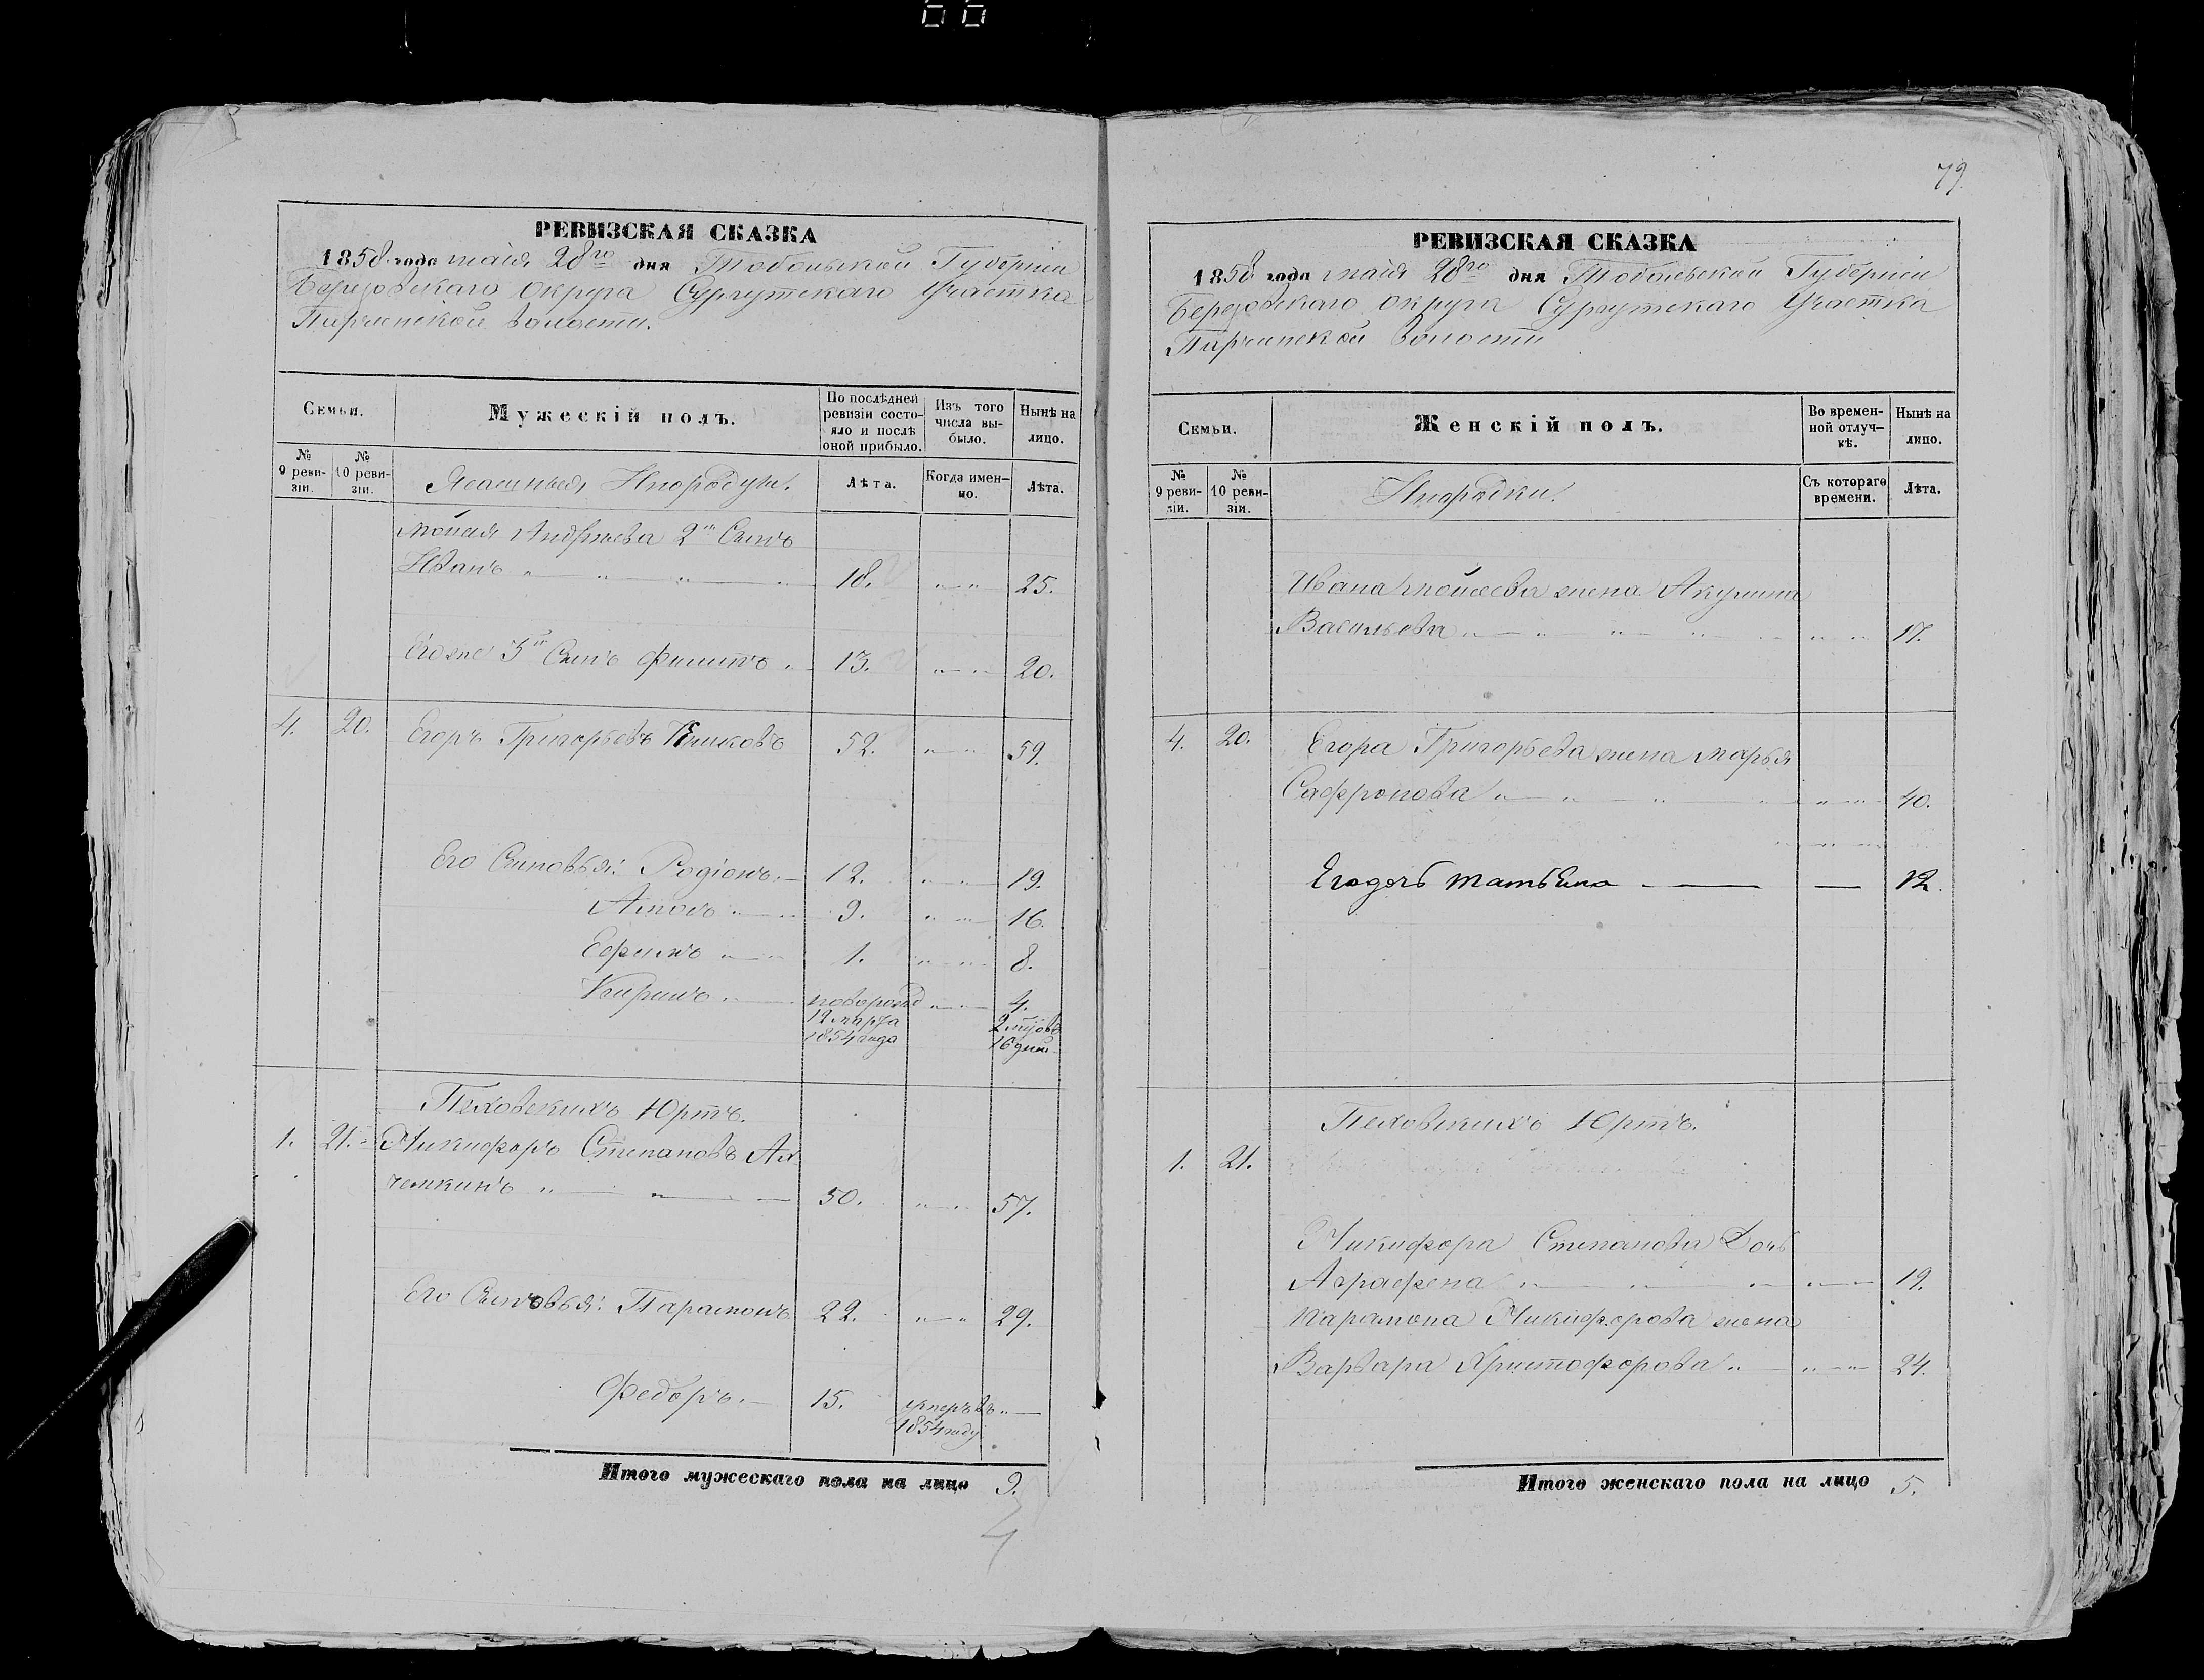 66
РЕВИЗСКАЯ СКАЗКА
1858 года маія 28го дня Тобольской Губерніи
Березовскаго Округа Сургутскаго Участка
Пирчинской волости.
Семьи.
Мужескій полъ.
По послѣдней ревизіи состояло и послѣ оной прибыло.
Изъ того числа выбыло.
Нынѣ на лицо.
№ 9 ревизіи.
№ 10 ревизіи.
Ясашные Инородцы.
Лѣта.
Когда именно.
Лѣта.
Моисея Андреева 2й Сынъ
Иванъ 18. 25.
Егоже 3й Сынъ Филипъ 13. 20.
4. 20. Егоръ Григорьевъ 52. 59.
Его Сыновья: Родіонъ 12. 19.
9. 16.
Ефимъ 1. 8.
новорожд 4.
12 марта 2 мцовъ
1854 года 16 дней
Пеховскихъ Юртъ.
1. 21. Никифоръ Степановъ Ач-
чемкинъ 50. 57.
Его Сыновья: Парамонъ 22. 29.
Федоръ. 15. умеръ въ
1854 году
Итого мужескаго пола на лицо 9.
79
РЕВИЗСКАЯ СКАЗКА
1858 года маія 28го дня Тобольской Губерніи
Березовскаго Округа Сургутскаго Участка
Пирчинской Волости
Семьи.
Женскій полъ.
Во временной отлучкѣ.
Нынѣ на лицо.
№ 9 ревизіи.
№ 10 ревизіи.
Инородки.
Съ котораго времени.
Лѣта.
Ивана Моисеева жена Акулина
Васильева 17.
4. 20. Егора Григорьева жена Марья
Сафронова 40.
Его дочь Татьяна 12.
Пеховскихъ Юртъ.
1. 21.
Никифора Степанова Дочь
Аграфена 19.
Парамона Никифорова жена
Варвара Христофорова 24.
Итого женскаго пола на лицо 5.